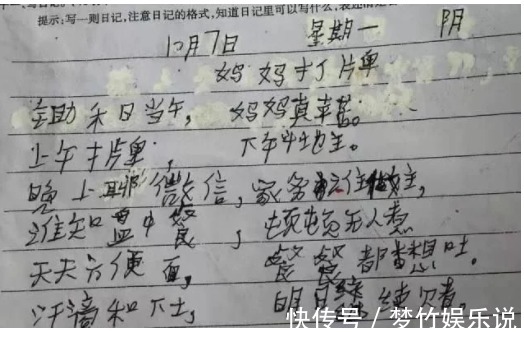 提示:写一则日记,注意日记的格式,知道日记里可以写什么,表述清楚
12月7日 星期一 阴
妈妈打片单
禾日当午, 妈妈真辛苦。
上午打片单, 下午斗地主。
晚上聊微信, 家务
谁知盘中餐, 顿顿无人煮
天天方便面, 餐餐都想吐。
汗滴和下土, 明日继续煮。
快传号 / 梦竹娱乐说